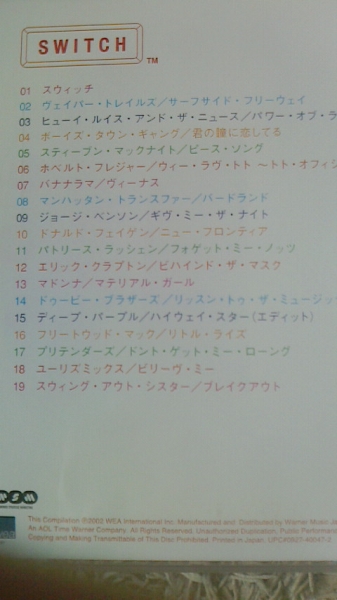 SWITCH
TM
01 スウィッチ
02 ヴェイパー・トレイルズ/サーフサイド・フリーウェイ
03 ヒューイ・ルイス・アンド・ザ・ニュース/パワー・オブ・ラ
04 ボーイズ・タウン・ギャング/君の瞳に恋してる
05 スティーブン・マックナイト/ピース・ソング
06 ホベルト・フレジャー/ウィー・ラヴ・トト 〜トト・オフィシ
07 バナナラマ/ヴィーナス
08 マンハッタン・トランスファー/バードランド
09 ジョージ・ベンソン/ギヴ・ミー・ザ・ナイト
10 ドナルド・フェイゲン/ニュー・フロンティア
11 パトリース・ラッシェン/フォゲット・ミー・ノッツ
12 エリック・クラプトン/ビハインド・ザ・マスク
13 マドンナ/マテリアル・ガール
14 ドゥービー・ブラザーズ/リッスン・トゥ・ザ・ミュージッ
15 ディープ・パープル/ハイウェイ・スター(エディット)
16 フリートウッド・マック/リトル・ライズ
17 プリテンダーズ/ドント・ゲット・ミー・ローング
18 ユーリズミックス/ビリーヴ・ミー
19 スウィング・アウト・シスター/ブレイクアウト
This Compilation ©2003 WEA International Inc. Manufactured and Distributed by Warner Music Ja
An AOL Time Warner Company. All Rights Reserved. Unauthorized Duplication, Public Performance
Copying and Making Transmittable of This Disc Prohibited. Printed in Japan.